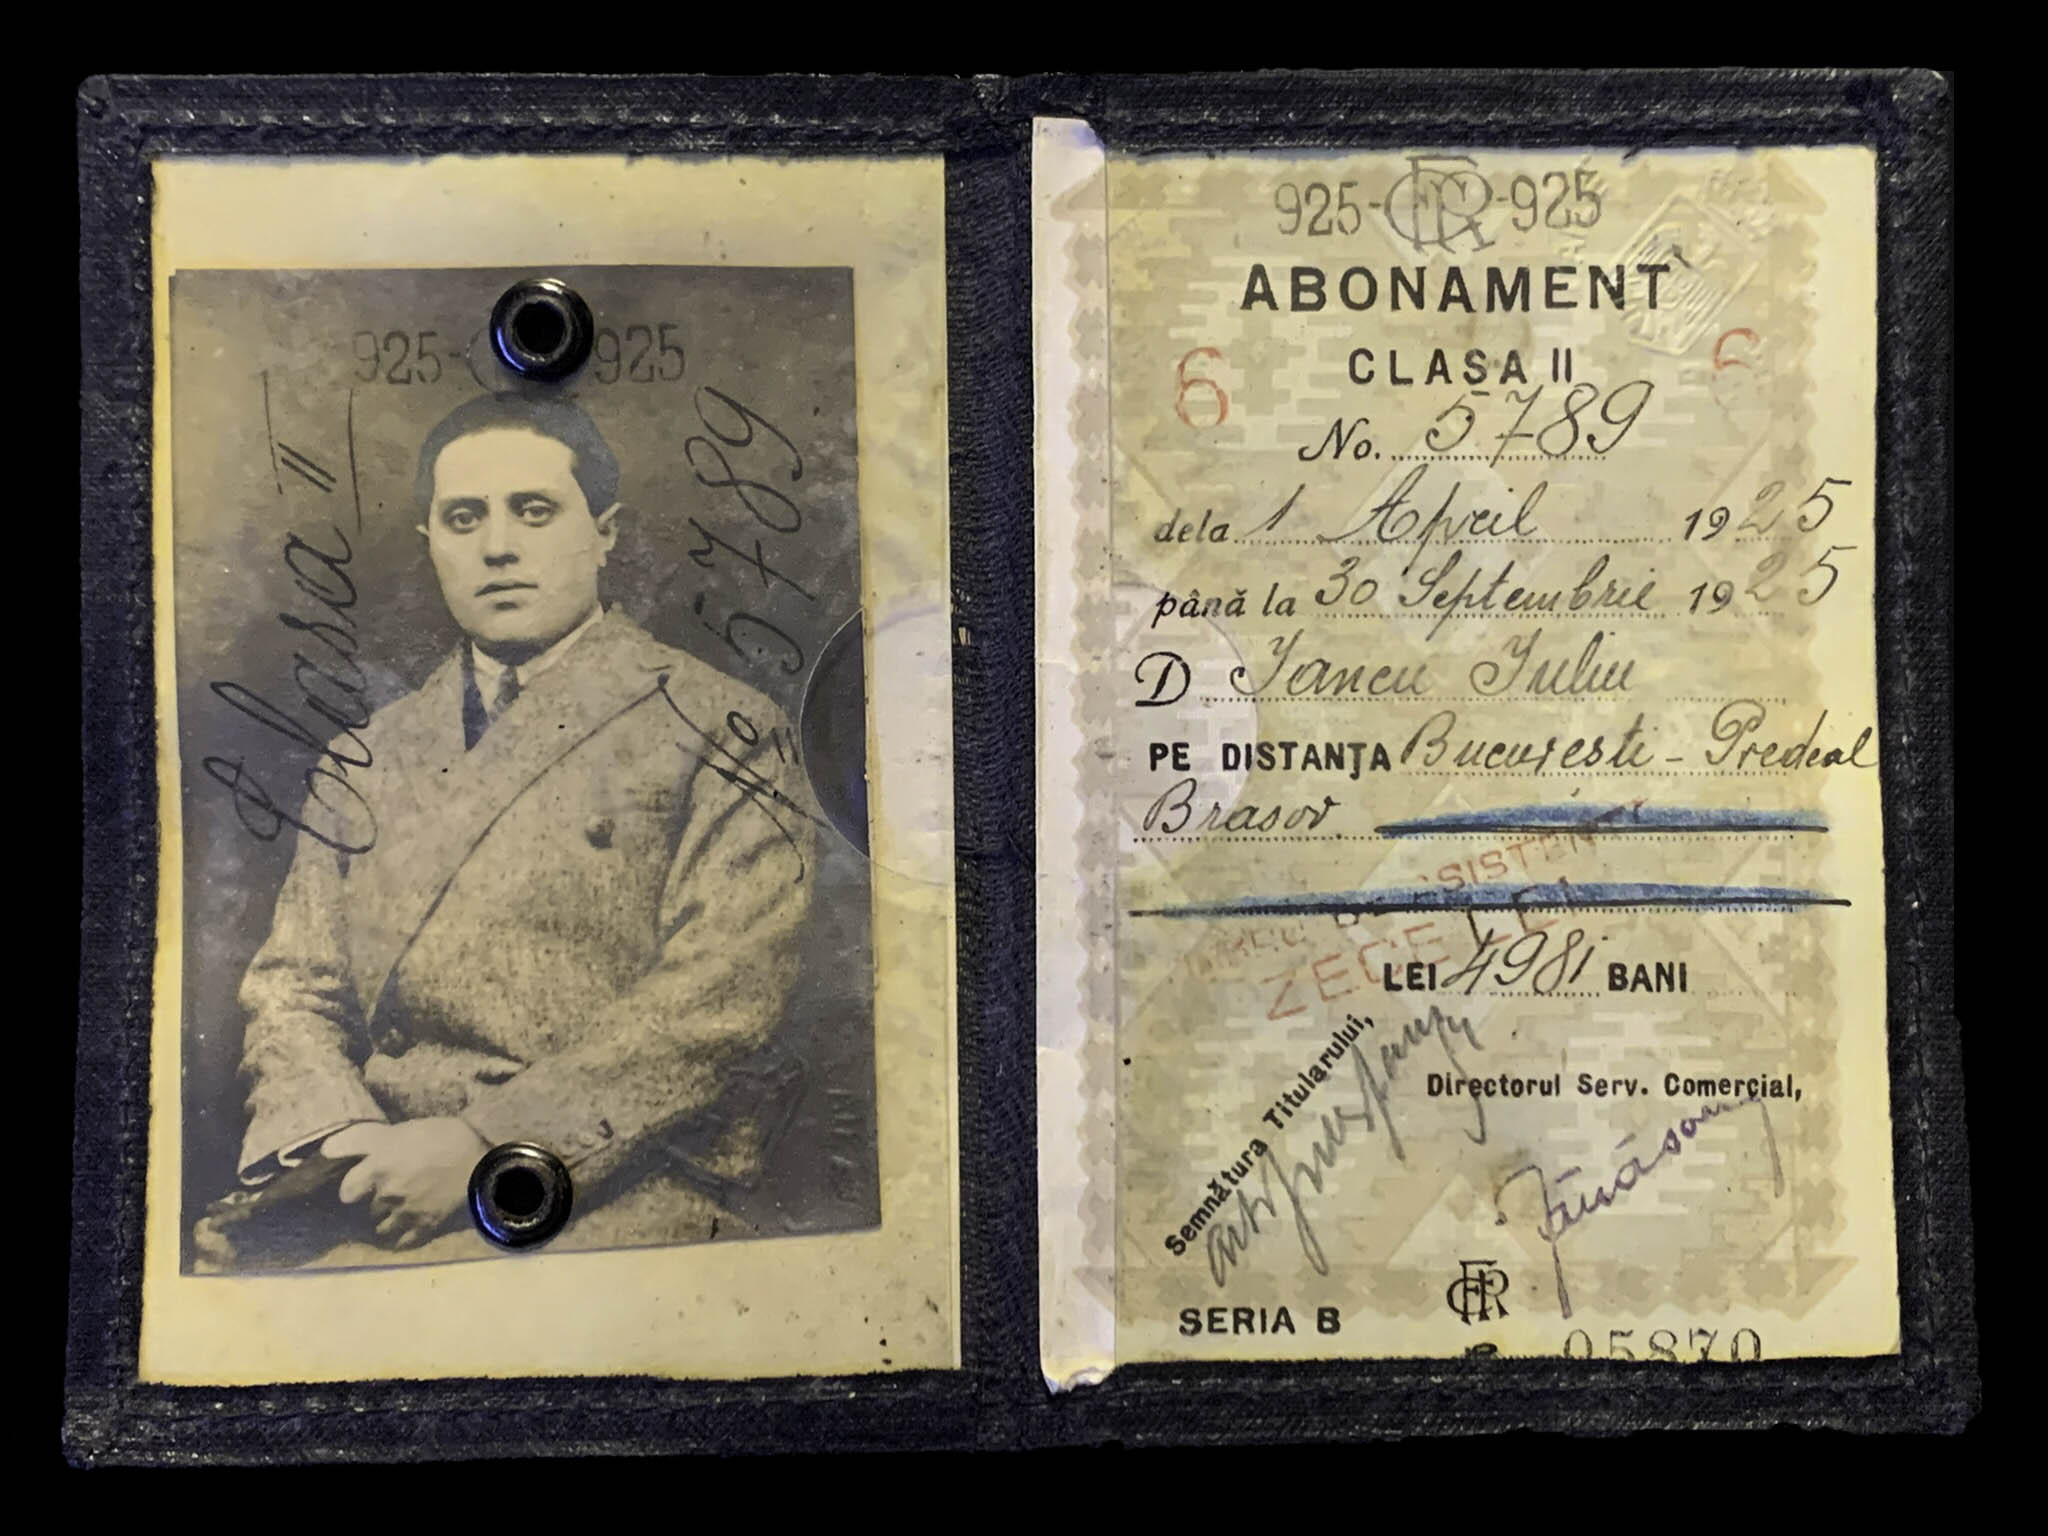 925- -925
Clasa II
No 5789
925-CFR-925
ABONAMENT
CLASA II
6 6
No. 5789
dela 1 April 1925
până la 30 Septembrie 1925
D Iancu Iuliu
PE DISTANȚA Bucuresti - Predeal
Brasov
ZECE LEI
LEI 4981 BANI
Semnătura Titularului,
Directorul Serv. Comercial,
SERIA B
CFR
05870